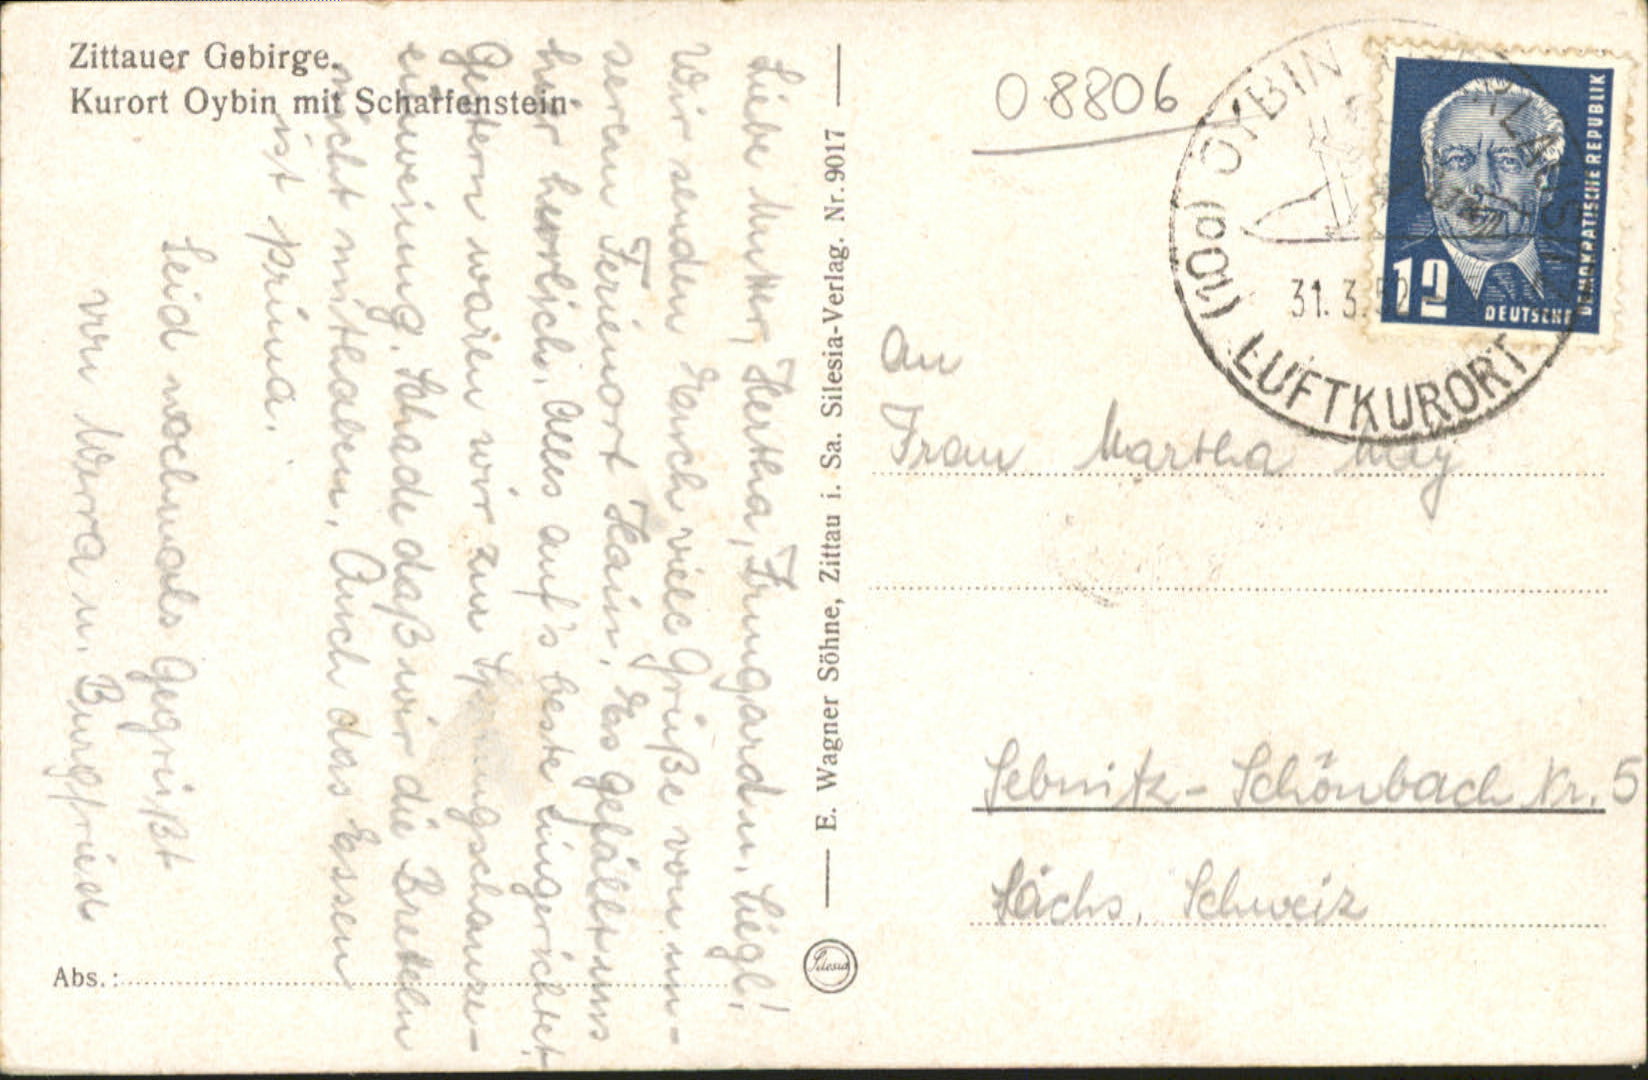 Zittauer Gebirge.
Kurort Oybin mit Scharfenstein
Liebe Mutter, Hertha, Irmgardm, Siegl!
Wir senden Euch viele Grüße von un-
serem Ferienort Hain. Es gefällt uns
hier herrlich. Alles auf's beste eingerichtet.
Gestern waren wir zur Sprungschanze-
einweihung. Schade daß wir die Breteln
nicht mithaben. Auch das Essen
ist prima.
Seid nochmals gegrüßt
von Werra u. Burgfried
Abs.:
E. Wagner Söhne, Zittau i. Sa. Silesia-Verlag. Nr. 9017
Silesia
08806
(10a) OYBIN
31.3.52
LUFTKURORT
12
DEUTSCHE
DEMOKRATISCHE REPUBLIK
An
Frau Martha May
Sebnitz-Schönbach Nr. 5
Sächs. Schweiz